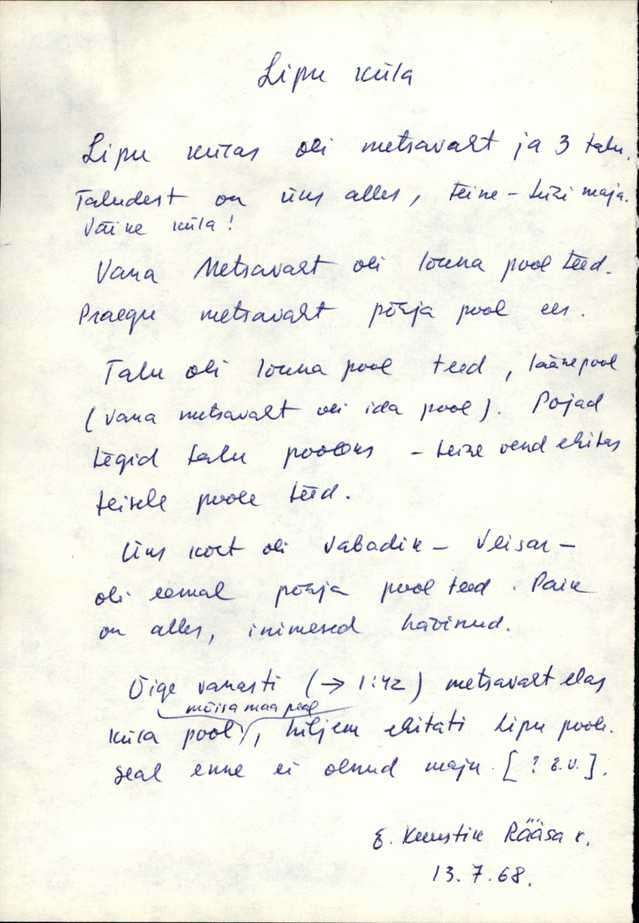 Lipu küla
Lipu külas oli metsavaht ja 3 talu.
Taludest on üks alles, teine - maja.
Väike küla!
Vana Metsavaht oli lõuna pool teed.
Praegu metsavaht põhja pool ees.
Talu oli lõuna pool teed, lääne pool
(vana metsavaht oli ida pool). Pojad
tegid talu pooleks - teine vend ehitas
teisele poole teed.
Üks koht oli vabadik - Veisar -
oli eemal põhja pool teed. Paik
on alles, inimesed hävinud.
Õige vanasti (→ 1:42) metsavaht elas
mõisa maa peal
küla pool, hiljem ehitati Lipu poole.
Seal enne ei olnud maju. [? E.V.].
E. Kunstik Rääsa k.
13.7.68.